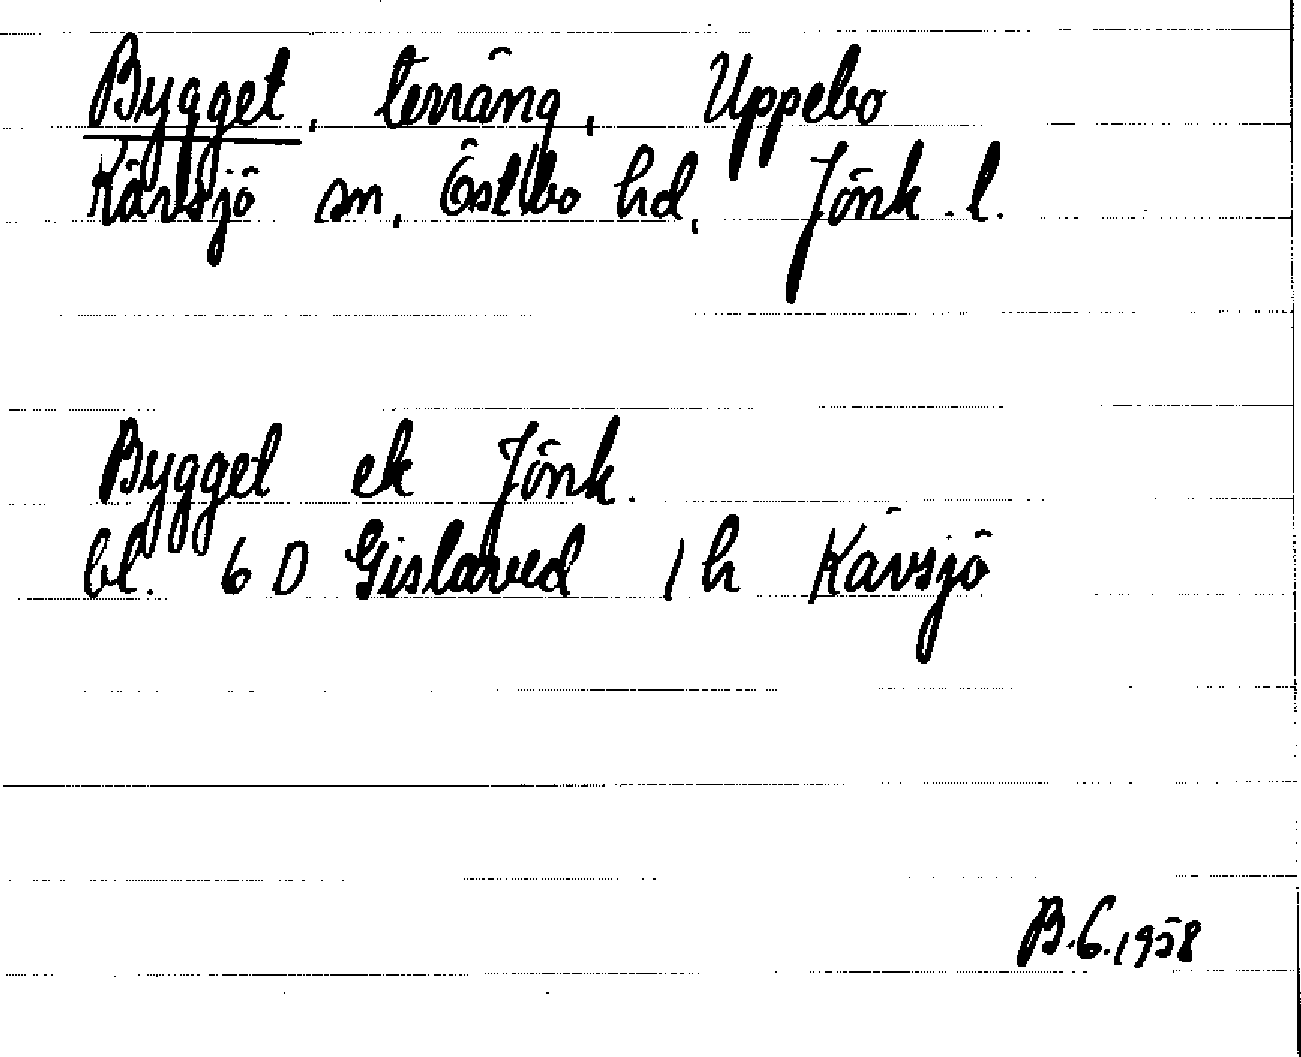 Bygget, terräng, Uppebo
Kävsjö sn, Östbo hd, Jönk. l.
Bygget ek Jönk.
bl. 6 D Gislaved 1 h Kävsjö
B.G.1958